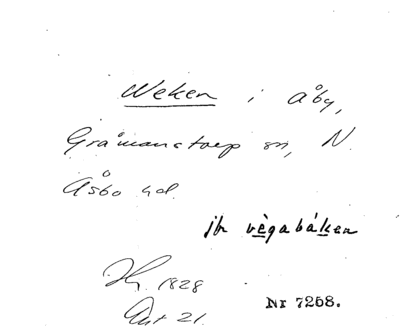 Weken i Åby,
Gråmanstorp sn, N.
Åsbo hd.
jfr vègabáken
1828
Ant 21.
Nr 7268.